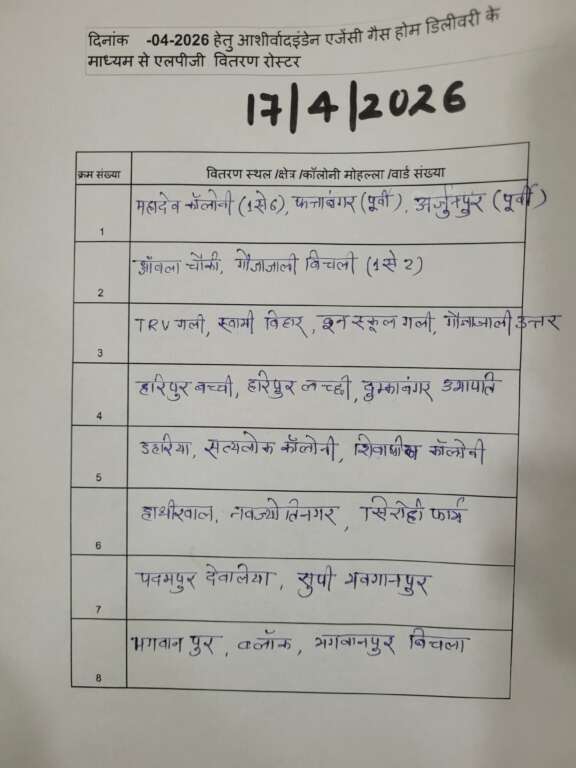 दिनांक -04-2026 हेतु आशीर्वादइंडेन एजेंसी गैस होम डिलीवरी के
माध्यम से एलपीजी वितरण रोस्टर
17/4/2026
क्रम संख्या वितरण स्थल /क्षेत्र /कॉलोनी मोहल्ला /वार्ड संख्या
1 महादेव कॉलोनी (1से6), फत्ताबंगर (पूर्वी), अर्जुनपुर (पूर्वी)
2 आँवला चौकी, गौजाजाली बिचली (1से 2)
3 TRV गली, स्वामी विहार, स्कूल गली, गौजाजाली उत्तर
4 हरिपुर बच्ची, हरिपुर लच्छी, दुम्काबंगर उमापति
5 डहरिया, सत्यलोक कॉलोनी, कॉलोनी
6 हाथीखाल, नवज्योतिनगर, सिरोही फार्म
7 पदमपुर देवलिया, सुपी भगवानपुर
8 भगवानपुर, ब्लॉक, भगवानपुर बिचला